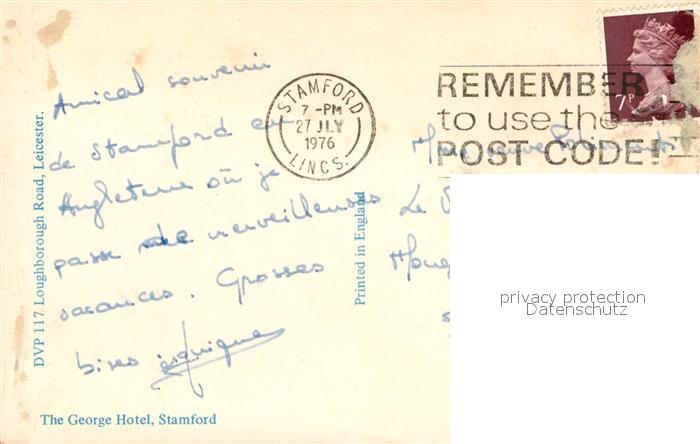 Amical souvenir
de Stamford en
Angleterre où je
passe de merveilleuses
vacances. Grosses
bises
STAMFORD
7 -PM
27 JLY
1976
LINCS.
REMEMBER
to use the
POST CODE!
7P
Le
DVP 117 Loughborough Road, Leicester.
Printed in England
The George Hotel, Stamford
privacy protection
Datenschutz